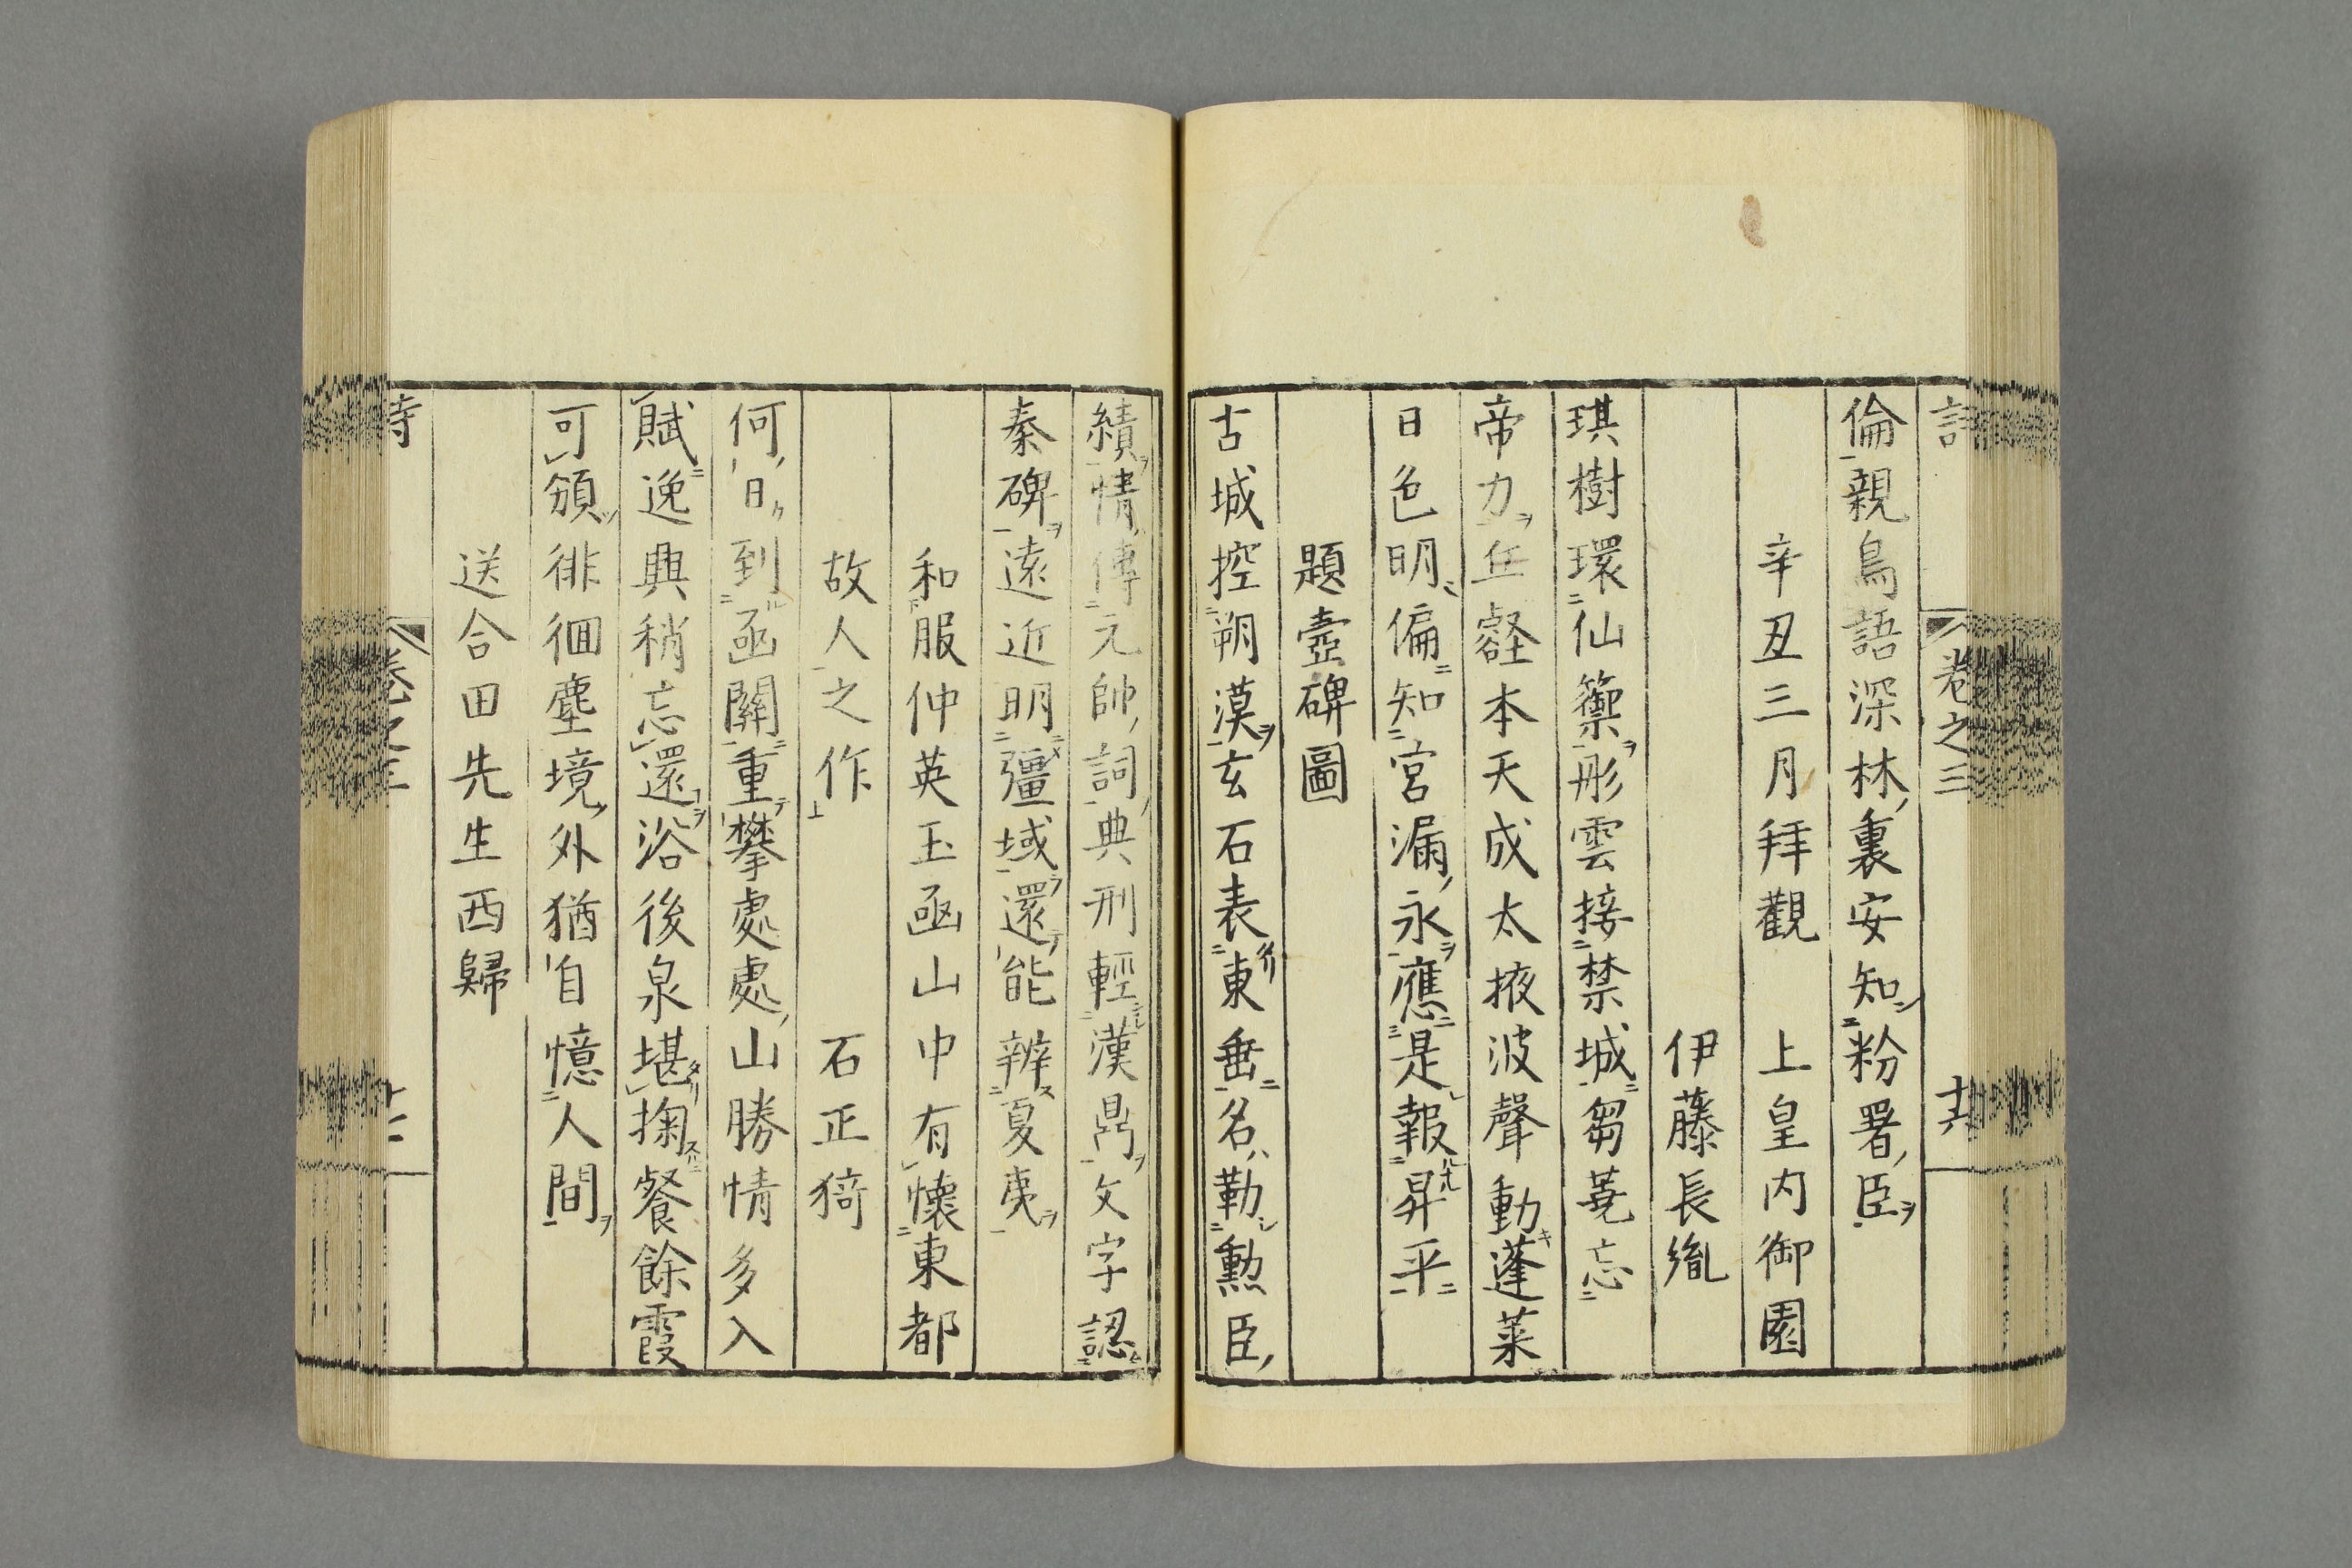 卷之三
倫親鳥語深林裏安知粉署臣
辛丑三月拜觀　上皇内御園
伊藤長胤
琪樹環仙籞彤雲接禁城芻蕘忘
帝力丘壑本天成太掖波聲動蓬萊
日色明偏知宮漏永應是報昇平
題壺碑圖
古城控朔漠玄石表東垂名勒勲臣
績情傳元帥詞典刑輕漢鼎文字認
秦碑遠近明疆域還能辨夏夷
和服仲英玉凾山中有懷東都
故人之作　石正猗
何日到凾關重攀處處山勝情多入
賦逸興稍忘還浴後泉堪掬餐餘霞
可頒徘徊塵境外猶自憶人間
送合田先生西歸